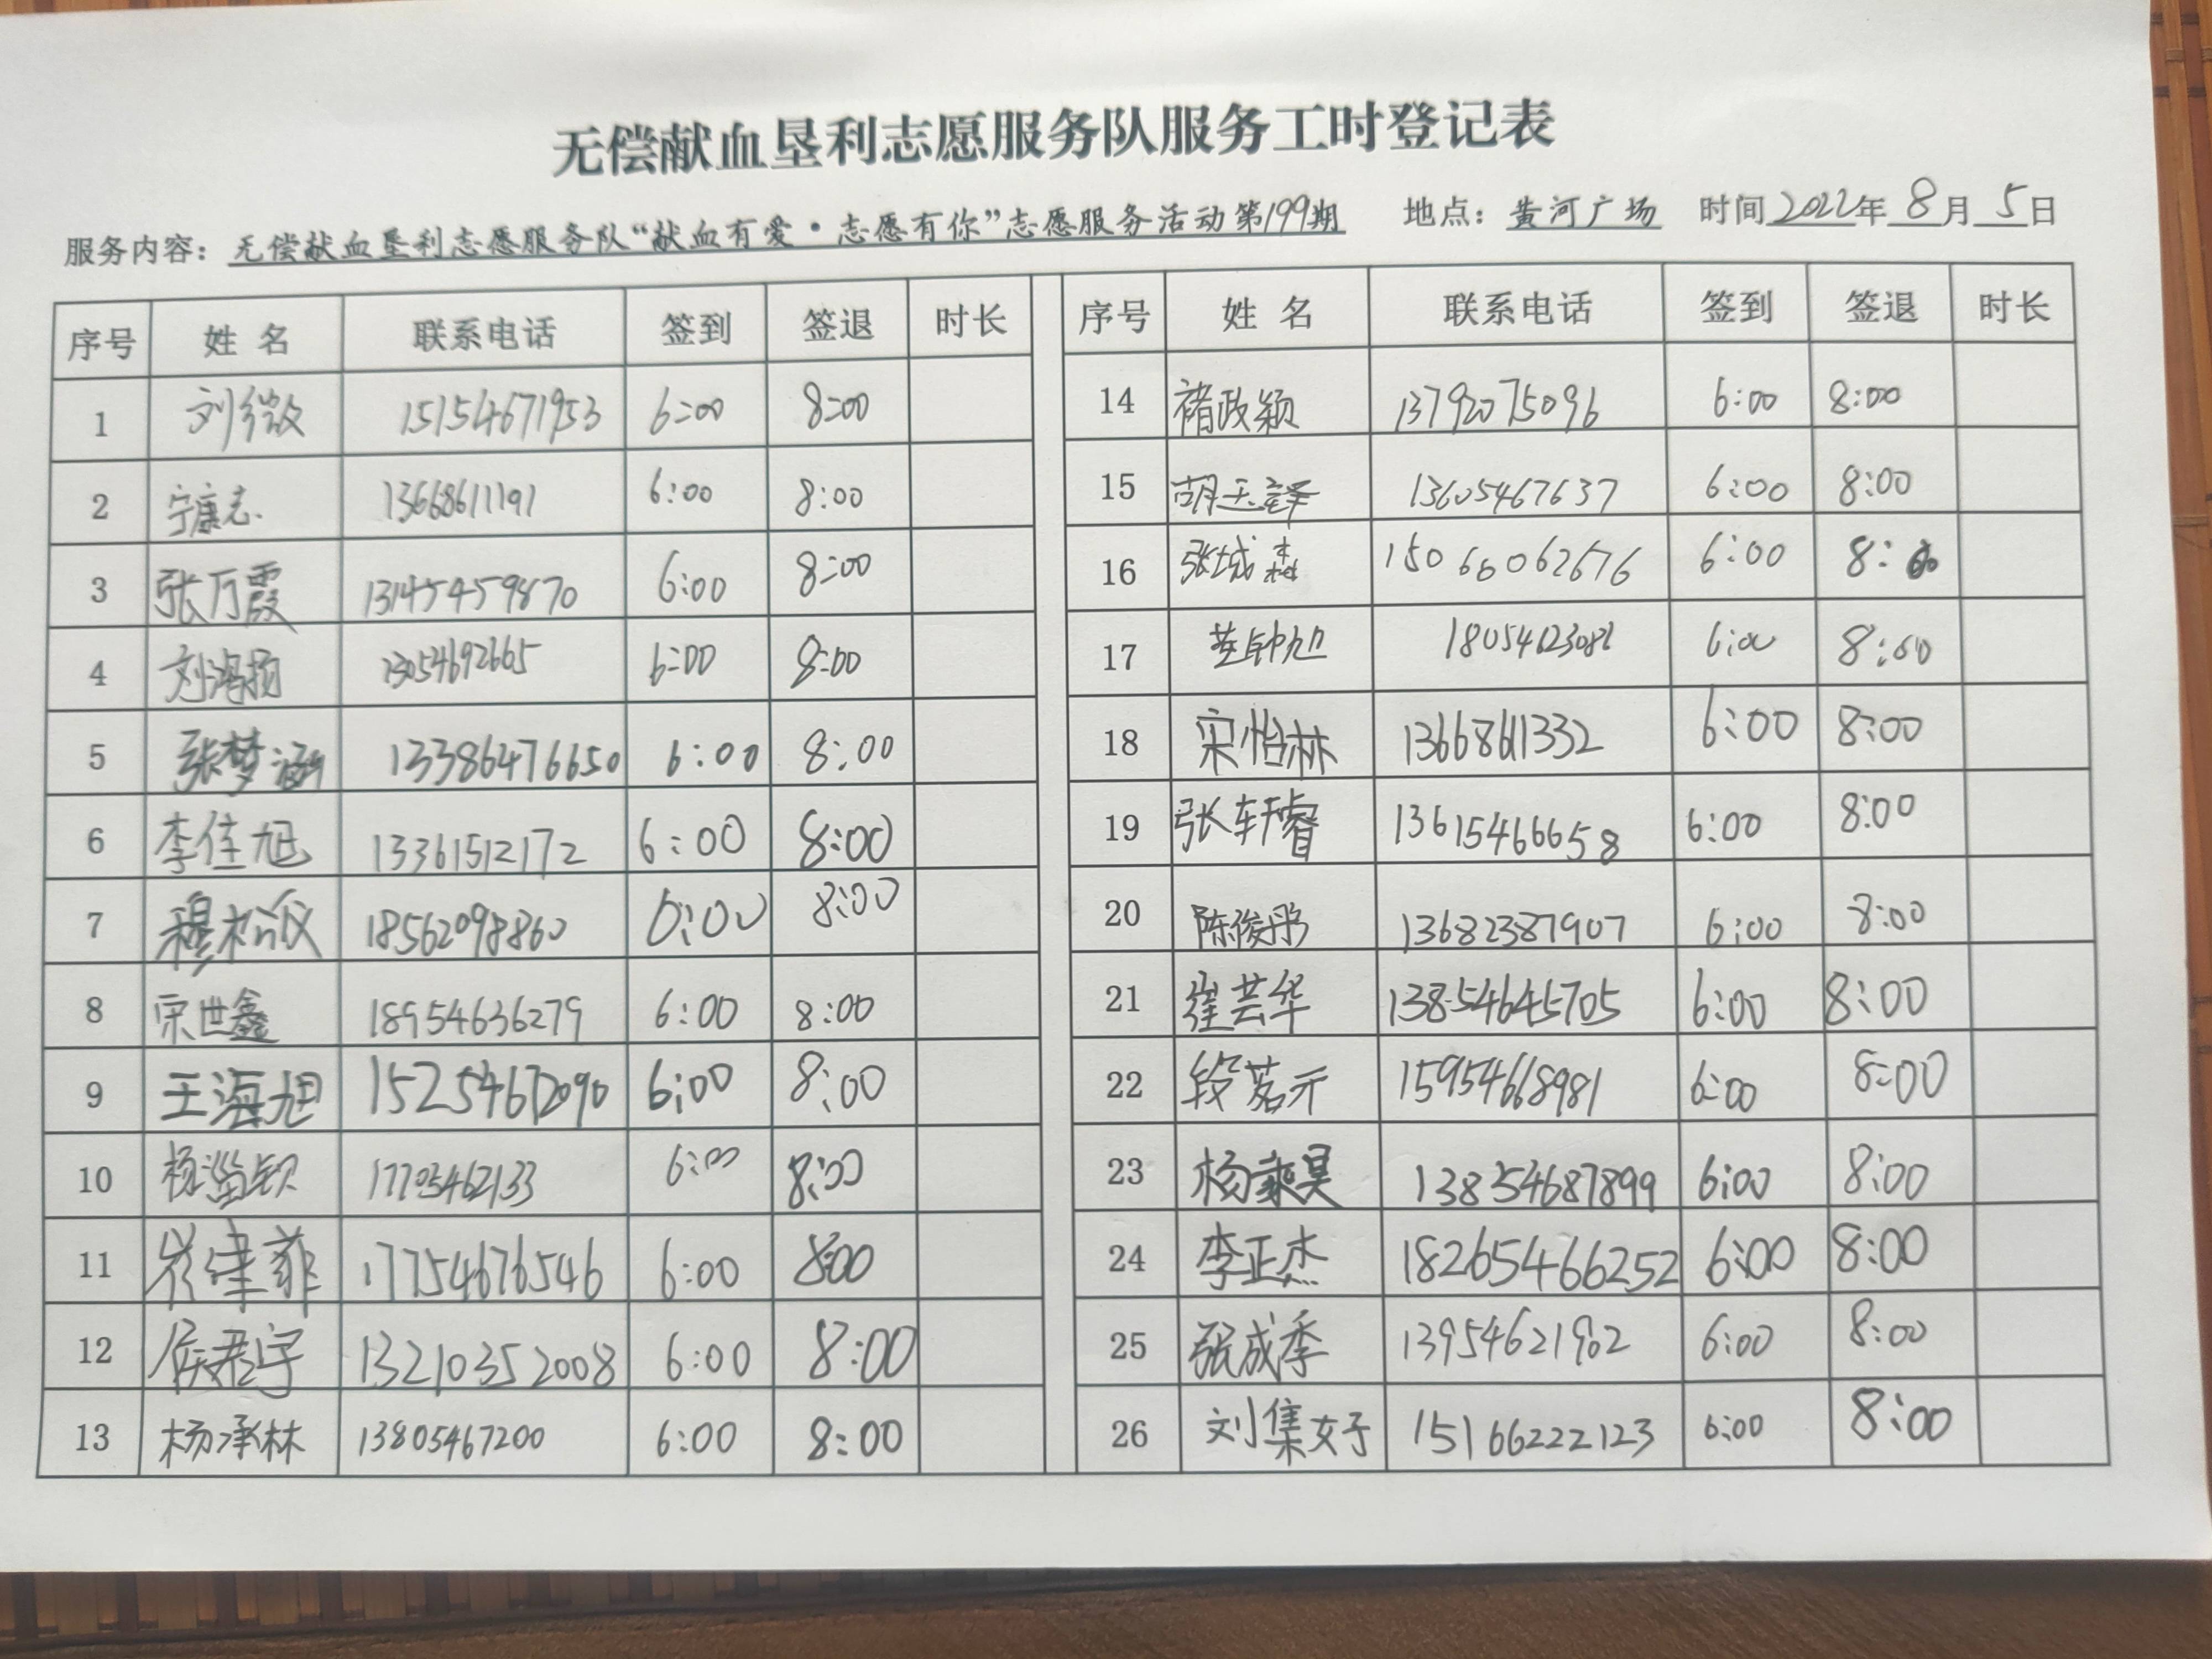 无偿献血垦利志愿服务队服务工时登记表
服务内容：无偿献血垦利志愿服务队“献血有爱·志愿有你”志愿服务活动第199期 地点：黄河广场 时间2022年8月5日
序号 姓名 联系电话 签到 签退 时长 序号 姓名 联系电话 签到 签退 时长
1 刘微 15154671953 6:00 8:00 14 褚政颖 13792075096 6:00 8:00
2 宁康志 13668611191 6:00 8:00 15 胡玉译 13605467637 6:00 8:00
3 张万霞 13145459870 6:00 8:00 16 张城森 15066062676 6:00 8:00
4 刘鸿扬 13054692665 6:00 8:00 17 钟旭 6:00 8:00
5 张梦涵 13386476650 6:00 8:00 18 宋怡林 13668611332 6:00 8:00
6 李佳旭 13361512172 6:00 8:00 19 张轩睿 13615466658 6:00 8:00
7 穆松 18562098860 6:00 8:00 20 陈俊彤 13682387907 6:00 8:00
8 宋世鑫 18954636279 6:00 8:00 21 崔芸华 13854645705 6:00 8:00
9 王海旭 15254672090 6:00 8:00 22 段茗元 15954668981 6:00 8:00
10 杨 17705462133 6:00 8:00 23 杨秉昊 13854687899 6:00 8:00
11 崔佳菲 17754676546 6:00 8:00 24 李正杰 18265466252 6:00 8:00
12 侯君宇 13210352008 6:00 8:00 25 张成季 13954621902 6:00 8:00
13 杨承林 13805467200 6:00 8:00 26 刘集女子 15166222123 6:00 8:00